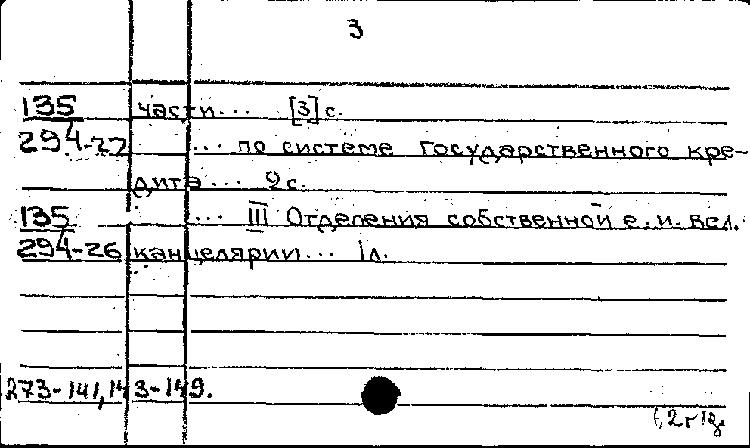 3
135 части... [3] с.
294-27 ... по системе Государственного кре-
дита... 9 с.
135 ... III Отделения собственной е. и. вел.
294-26 канцелярии... 1 л.
273-141, 143-149.